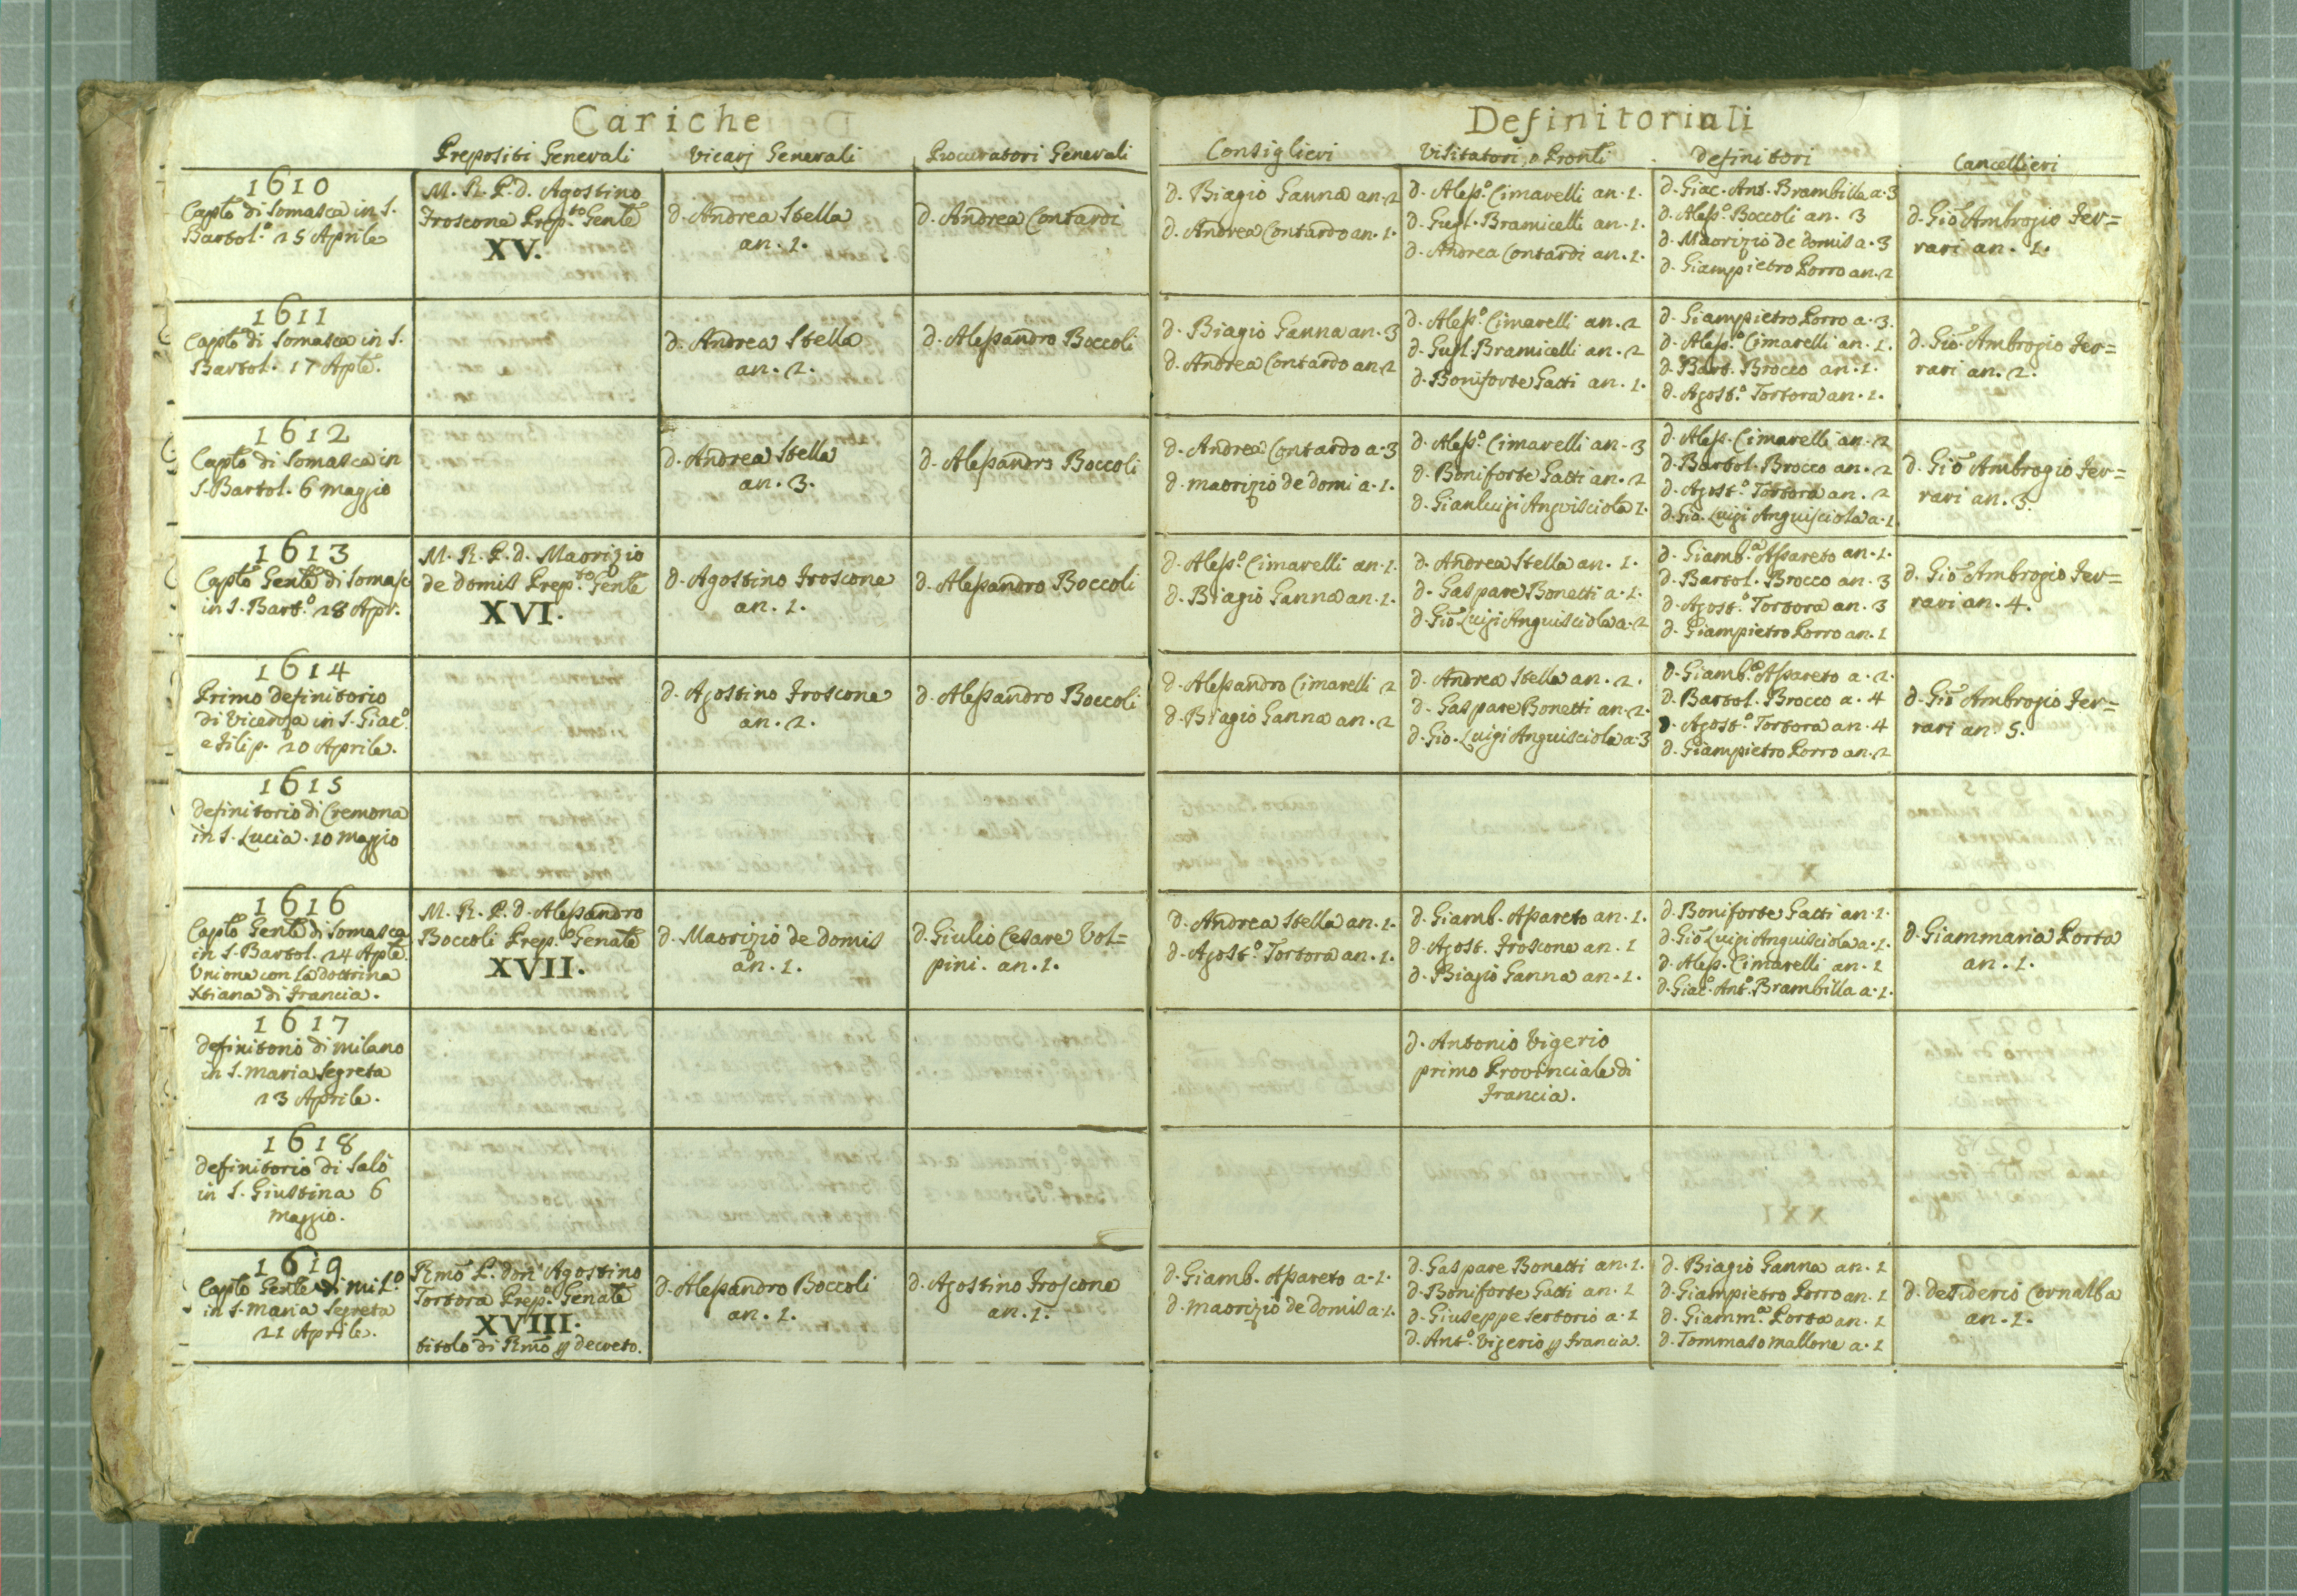 Cariche
Definitoriali
Prepositi Generali
Vicarj Generali
Procuratori Generali
Consiglieri
Visitatori, o Pronli
Definitori
Cancellieri
1610
Caplo di Somasca in S.
Bartol.o 25 Aprile
M. R. P. d. Agostino
Froscone Prep.to Genle
XV.
d. Andrea Stella
an. 1.
d. Andrea Contardi
d. Biagio Ganna an. 2
d. Andrea Contardo an. 1.
d. Aless.o Cimarelli an. 1.
d. Gugl. Bramicelli an. 1.
d. Andrea Contardi an. 1.
d. Giac. Ant. Brambilla a. 3
d. Aless.o Boccoli an. 3
d. Maorizio de Domis a. 3
d. Giampietro Porro an. 2
d. Gio Ambrogio Fer=
rari an. 1.
1611
Caplo di Somasca in S.
Bartol. 17 Aple.
d. Andrea Stella
an. 2.
d. Alessandro Boccoli
d. Biagio Ganna an. 3
d. Andrea Contardo an. 2
d. Aless.o Cimarelli an. 2
d. Gugl. Bramicelli an. 2
d. Boniforte Gatti an. 1.
d. Giampietro Porro a. 3.
d. Aless.o Cimarelli an. 1.
d. Bart. Brocco an. 1.
d. Agost.o Tortora an. 1.
d. Gio Ambrogio Fer=
rari an. 2.
1612
Caplo di Somasca in
S. Bartol. 6 Maggio
d. Andrea Stella
an. 3.
d. Alessandro Boccoli
d. Andrea Contardo a. 3
d. Maorizio de Domi a. 1.
d. Aless.o Cimarelli an. 3
d. Boniforte Gatti an. 2
d. Gianluigi Anguisciola 1.
d. Aless. Cimarelli an. 2
d. Bartol. Brocco an. 2
d. Agost.o Tortora an. 2
d. Gio. Luigi Anguisciola a. 1
d. Gio Ambrogio Fer=
rari an. 3.
1613
Caplo Genle di Somasc
in S. Bart.o 28 Apr.
M. R. P. d. Maorizio
de Domis Prep.to Genle
XVI.
d. Agostino Froscone
an. 1.
d. Alessandro Boccoli
d. Aless.o Cimarelli an. 1.
d. Biagio Ganna an. 1.
d. Andrea Stella an. 1.
d. Gaspare Bonetti a. 1.
d. Gio Luigi Anguisciola a. 2
d. Giamb.a Assareto an. 1.
d. Bartol. Brocco an. 3
d. Agost.o Tortora an. 3
d. Giampietro Porro an. 1
d. Gio Ambrogio Fer=
rari an. 4.
1614
Primo Definitorio
di Vicenza in S. Giac.o
e Filip. 20 Aprile.
d. Agostino Froscone
an. 2.
d. Alessandro Boccoli
d. Alessandro Cimarelli 2
d. Biagio Ganna an. 2
d. Andrea Stella an. 2.
d. Gaspare Bonetti an. 2.
d. Gio. Luigi Anguisciola a. 3
d. Giamb.a Assareto a. 2.
d. Bartol. Brocco a. 4
d. Agost.o Tortora an. 4
d. Giampietro Porro an. 2
d. Gio Ambrogio Fer=
rari an. 5.
1615
Definitorio di Cremona
in S. Lucia. 10 Maggio
1616
Caplo Genle di Somasca
in S. Bartol. 24 Aple.
Unione con la Dottrina
Xtiana di Francia.
M. R. P. d. Alessandro
Boccoli Prep.o Genale
XVII.
d. Maorizio de Domis
an. 1.
d. Giulio Cesare Vol=
pini. an. 1.
d. Andrea Stella an. 1.
d. Agost.o Tortora an. 1.
d. Giamb. Assareto an. 1.
d. Agost. Froscone an. 1
d. Biagio Ganna an. 1.
d. Boniforte Gatti an. 1.
d. Gio Luigi Anguisciola a. 1.
d. Aless. Cimarelli an. 1
d. Giac.o Ant.o Brambilla a. 1.
d. Giammaria Porta
an. 1.
1617
Definitorio di Milano
in S. Maria Segreta
23 Aprile.
d. Antonio Vigerio
primo Provinciale di
Francia.
1618
Definitorio di Salò
in S. Giustina 6
Maggio.
1619
Caplo Genle di Mil.o
in S. Maria Segreta
21 Aprile.
Rmo P. don Agostino
Tortora Prep.o Genale
XVIII.
titolo di Rmo p decreto.
d. Alessandro Boccoli
an. 1.
d. Agostino Froscone
an. 1.
d. Giamb. Assareto a. 1.
d. Maorizio de Domis a. 1.
d. Gaspare Bonetti an. 1.
d. Boniforte Gatti an. 1
d. Giuseppe Sertorio a. 1
d. Ant.o Vigerio p Francia.
d. Biagio Ganna an. 1
d. Giampietro Porro an. 1
d. Giamm.a Porta an. 1
d. Tommaso Mallone a. 1
d. Desiderio Cornalba
an. 1.